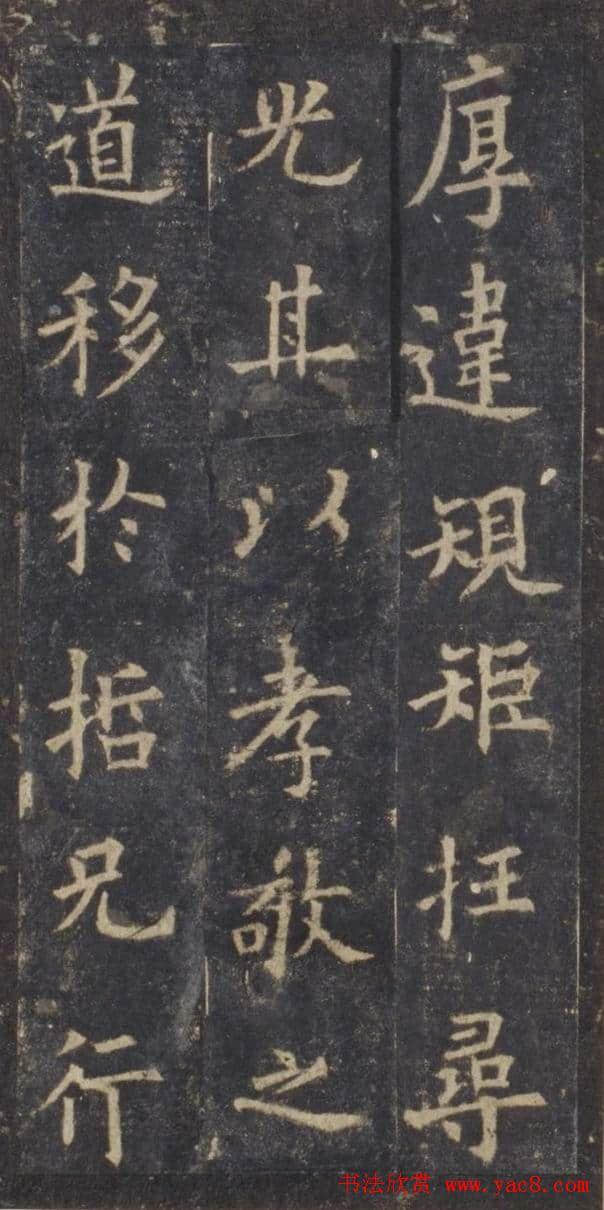 厚違規矩枉尋
光其以孝敬之
道移於哲兄行
书法欣赏 www.yac8.com